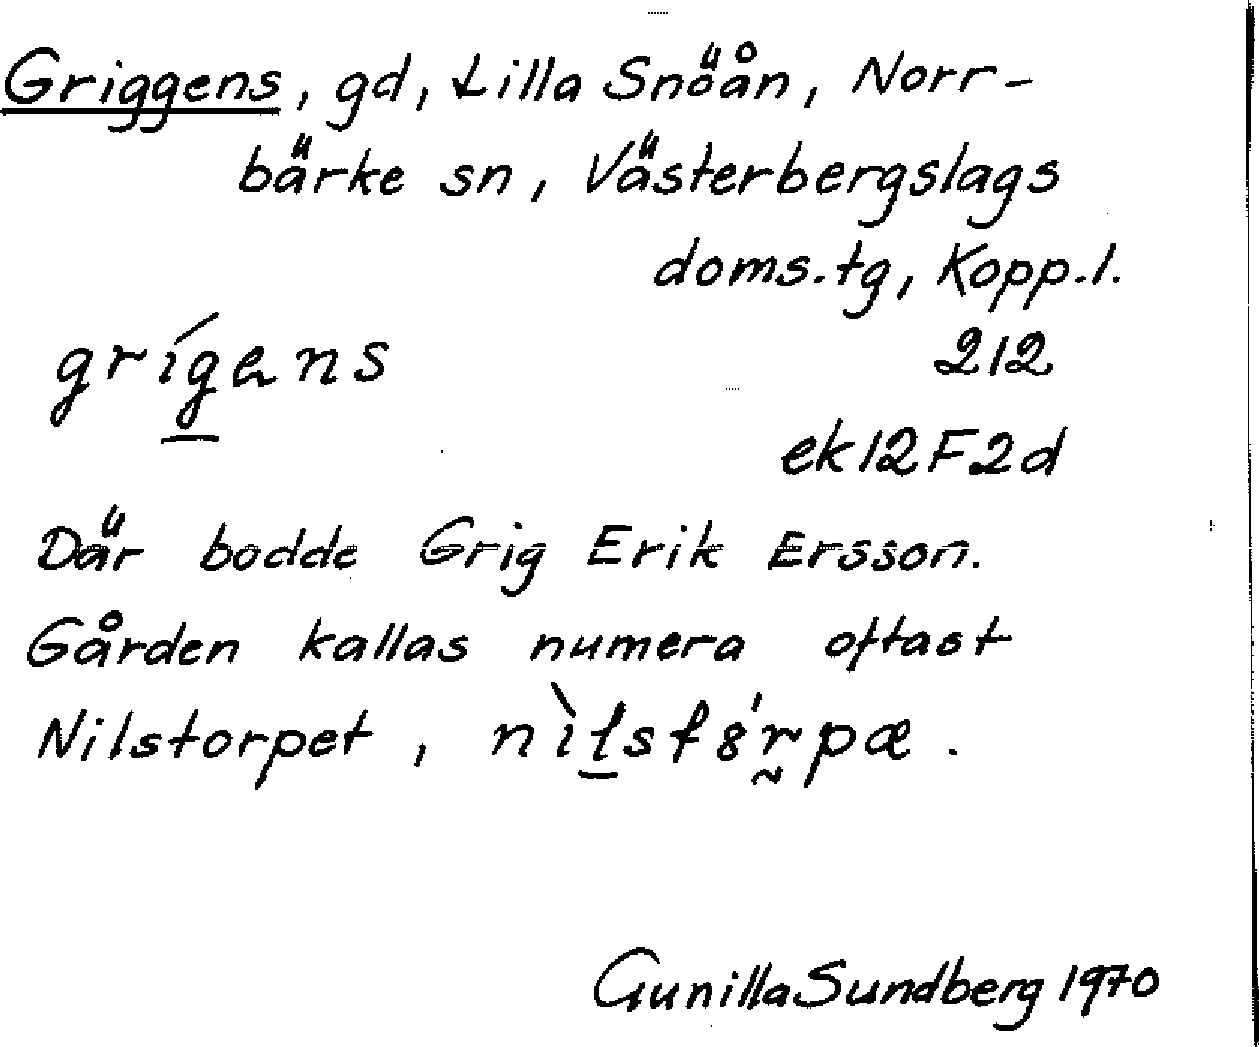 Griggens, gd, Lilla Snöån, Norr-
bärke sn, Västerbergslags
doms.tg, Kopp.l.
gríg̲ens 212
ek 12F2d
Där bodde Grig Erik Ersson.
Gården kallas numera oftast
Nilstorpet,
Gunilla Sundberg 1970